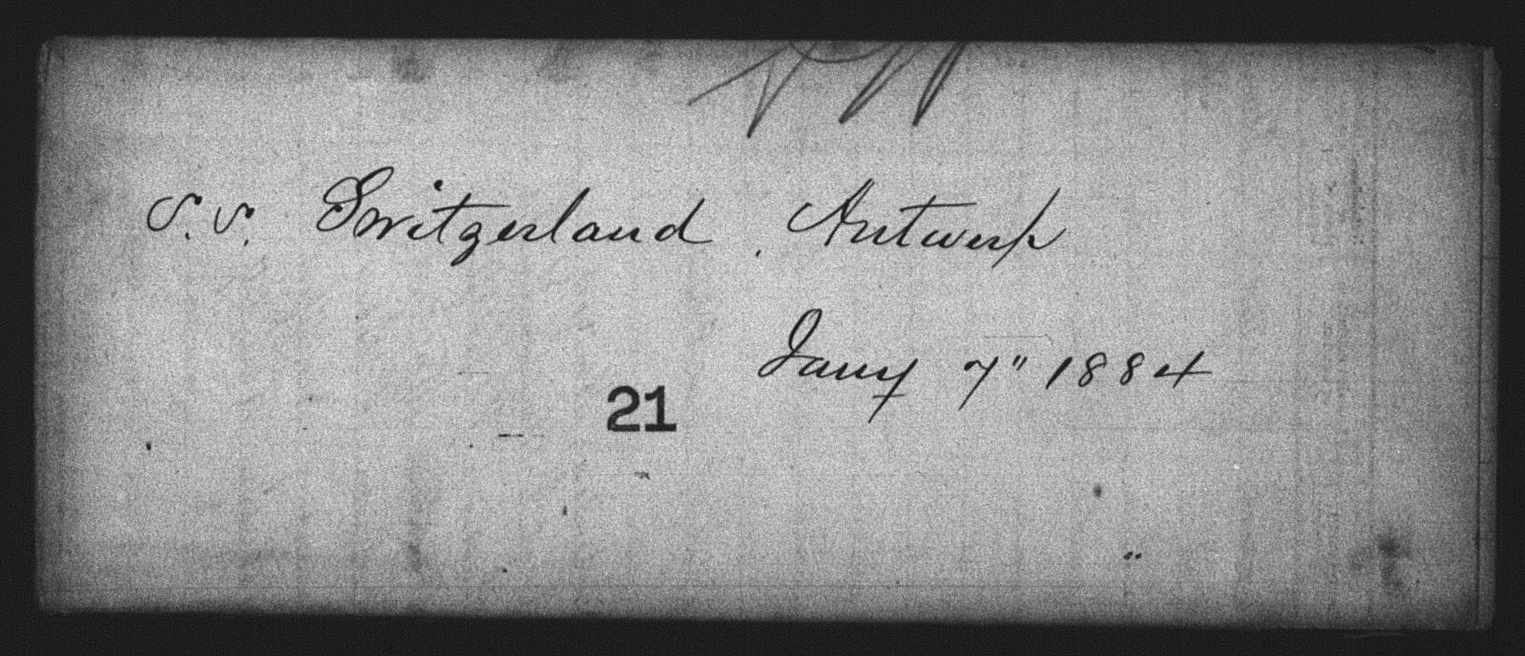 S.S. Switzerland, Antwerp
Jany 7" 1884
21